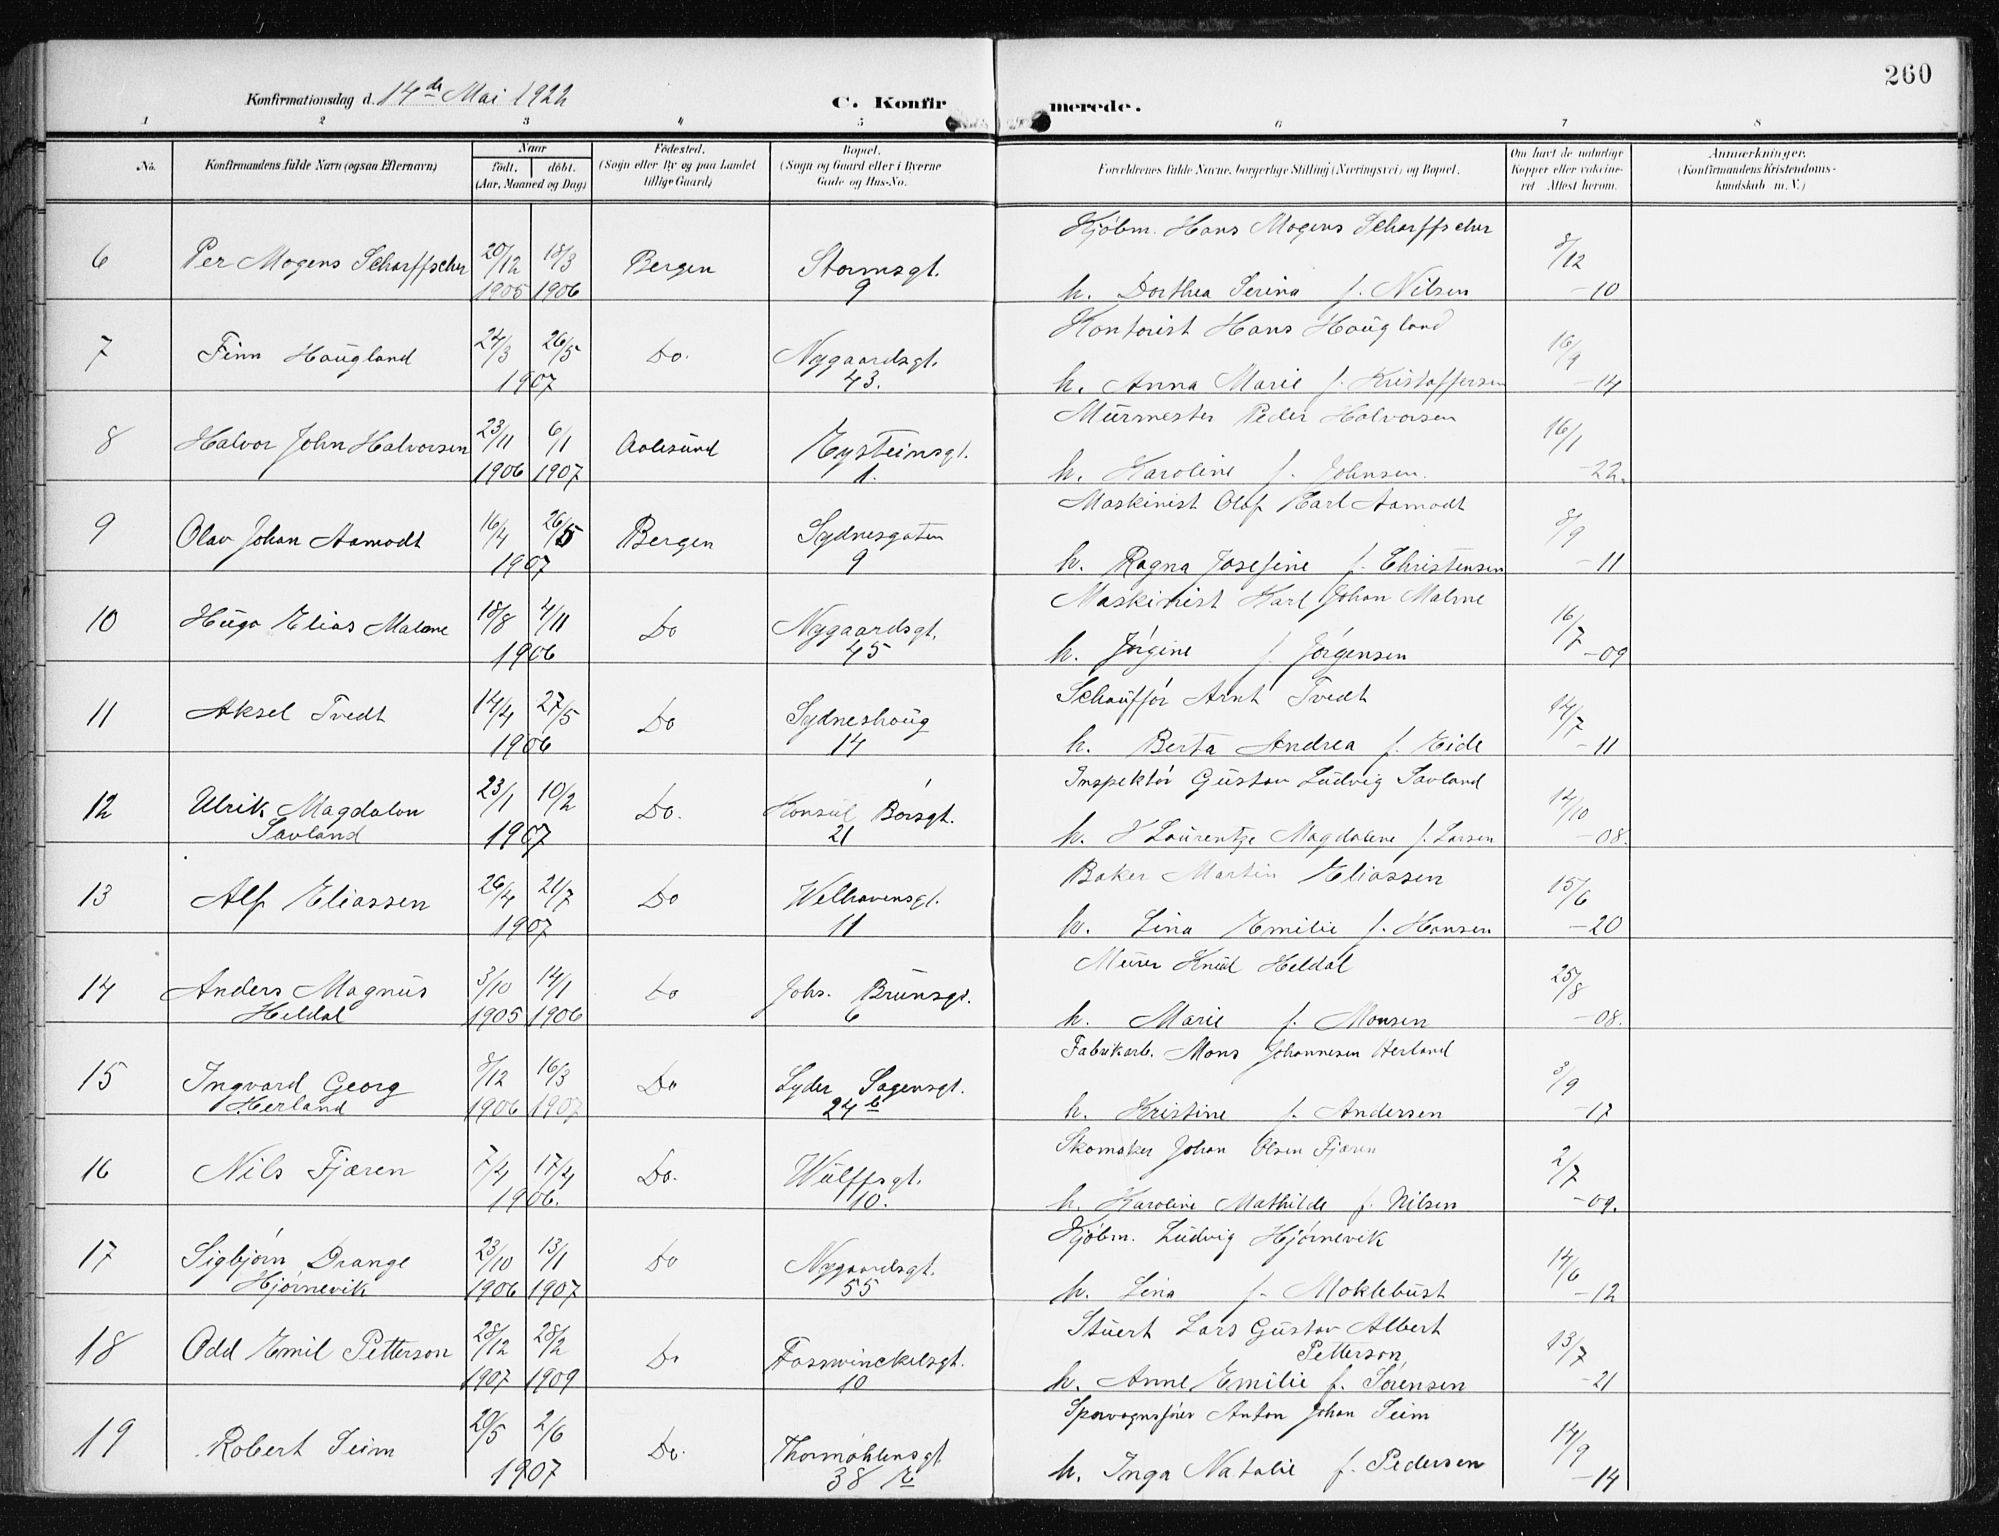 260
Konfirmationsdag d. 14de Mai 1922
C. Konfirmerede.
1 2 3 4 5 6 7 8
No. Konfirmandens fulde Navn (ogsaa Efternavn) Naar født. døbt. (Aar, Maaned og Dag) Fødested. (Sogn eller By og paa Landet tillige Gaard) Bopæl. (Sogn og Gaard eller i Byerne Gade og Hus-No. Forældrenes fulde Navne, borgerlige Stilling (Næringsvei) og Bopæl. Om havt de naturlige Kopper eller vakcineret Attest herom. Anmærkninger. (Konfirmandens Kristendomskundskab m. V.)
Kjøbm. Hans Mogens Scharffscher
6 Per Mogens Scharffscher 20/12 18/3 Bergen Stormsgt. 8/12
1905 1906 9 h. Dorthea Serina f. Nilsen -10
Kontorist Hans Haugland
7 Finn Haugland 24/3 26/5 Do. Nygaardsgt. 16/9
1907 43. h. Anna Marie f. Kristoffersen -14
Murmester Peder Halvorsen
8 Halvor John Halvorsen 23/11 6/1 Aalesund Eysteinsgt. 16/1
1906 1907 1. h. Karoline f. Johnsen. -22.
Maskinist Olaf Karl Aamodt
9 Olav Johan Aamodt 16/4 26/5 Bergen Sydnesgaten 8/9
1907 9 h. Ragna Josefine f. Christensen -11
Maskinist Karl Johan Malme
10 Hugo Elias Malme 18/8 4/11 Do Nygaardsgt. 16/7
1906 45 h. Jørgine f. Jørgensen -09
Schauffør Arnt Tvedt
11 Aksel Tvedt 14/4 27/5 Do Sydneshaug 14/7
1906 14 h. Berta Andrea f. Eide -11
Inspektør Gustav Ludvig Savland
12 Ulrik Magdalon 23/1 10/2 Do. Konsul Børsgt. 14/10
Savland 1907 21 h. Laurentze Magdalene f. Larsen -08.
Baker Martin Eliassen
13 Alf Eliassen 26/4 21/7 Do Welhavensgt. 15/6
1907 11 h. Lina Emilie f. Hansen -20
Murer Knud Heldal
14 Anders Magnus 3/10 14/1 Do Johs. Brunsgt. 25/8
Heldal 1905 1906 6 h. Marie f. Monsen -08.
Fabrikarb. Mons Johannesen Herland
15 Ingvard Georg 8/12 16/3 Do Lyder Sagensgt. 3/9
Herland 1906 1907 24b h. Kristine f. Andersen -17
Skomaker Johan Olsen Fjæren
16 Nils Fjæren 7/4 17/4 Do. Wulffsgt. 2/7
1906. 10. h. Karoline Mathilde f. Nilsen -09.
Kjøbm. Ludvig Hjørnevik
17 Sigbjørn Drange 23/10 13/1 Do Nygaardsgt. 14/6
Hjørnevik 1906 1907 55 h. Lina f. Moklebust -12
Stuert Lars Gustav Albert
18 Odd Emil Petterson 28/12 28/2 Do Fosswinckelsgt. Petterson 13/7
1907 1909 10 h. Anne Emilie f. Sørensen -21
Sporvognsfører Anton Johan Seim
19 Robert Seim 20/5 2/6 Do. Thormøhlensgt 14/9
1907 38 h. Inga Natalie f. Pedersen -14